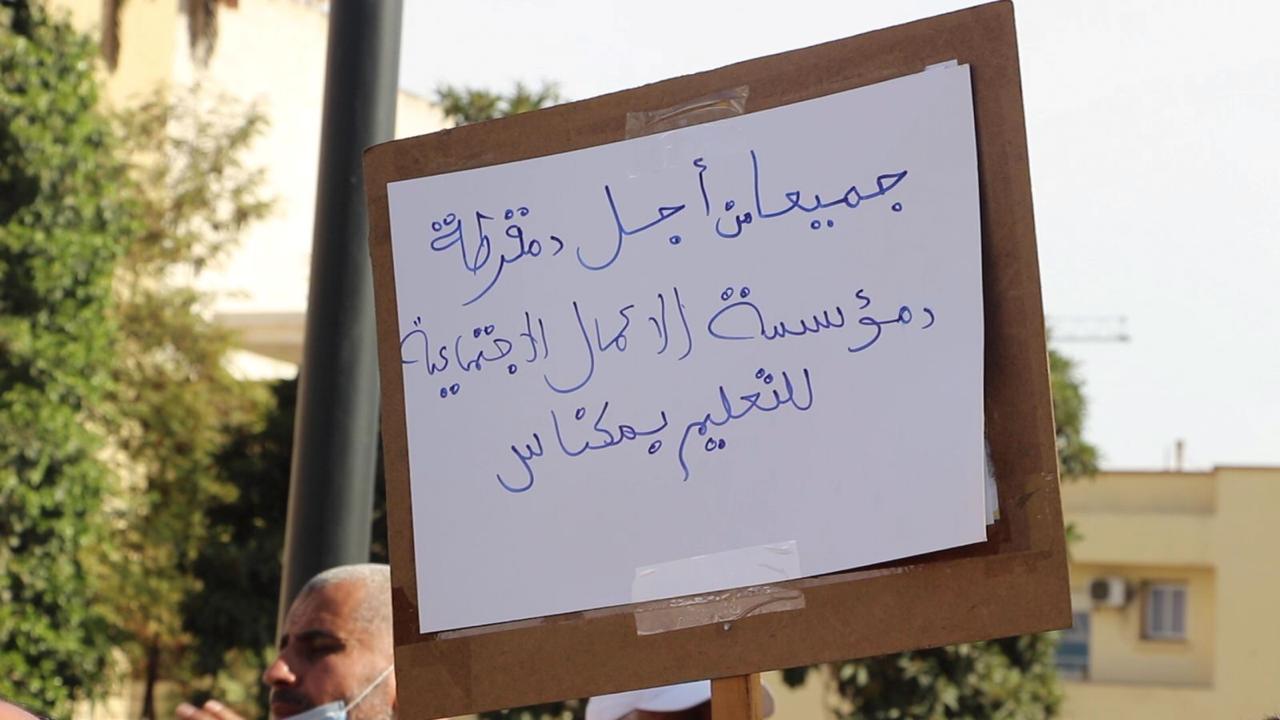 جميعا من أجل دمقرطة
مؤسسة الاعمال الاجتماعية
للتعليم بمكناس